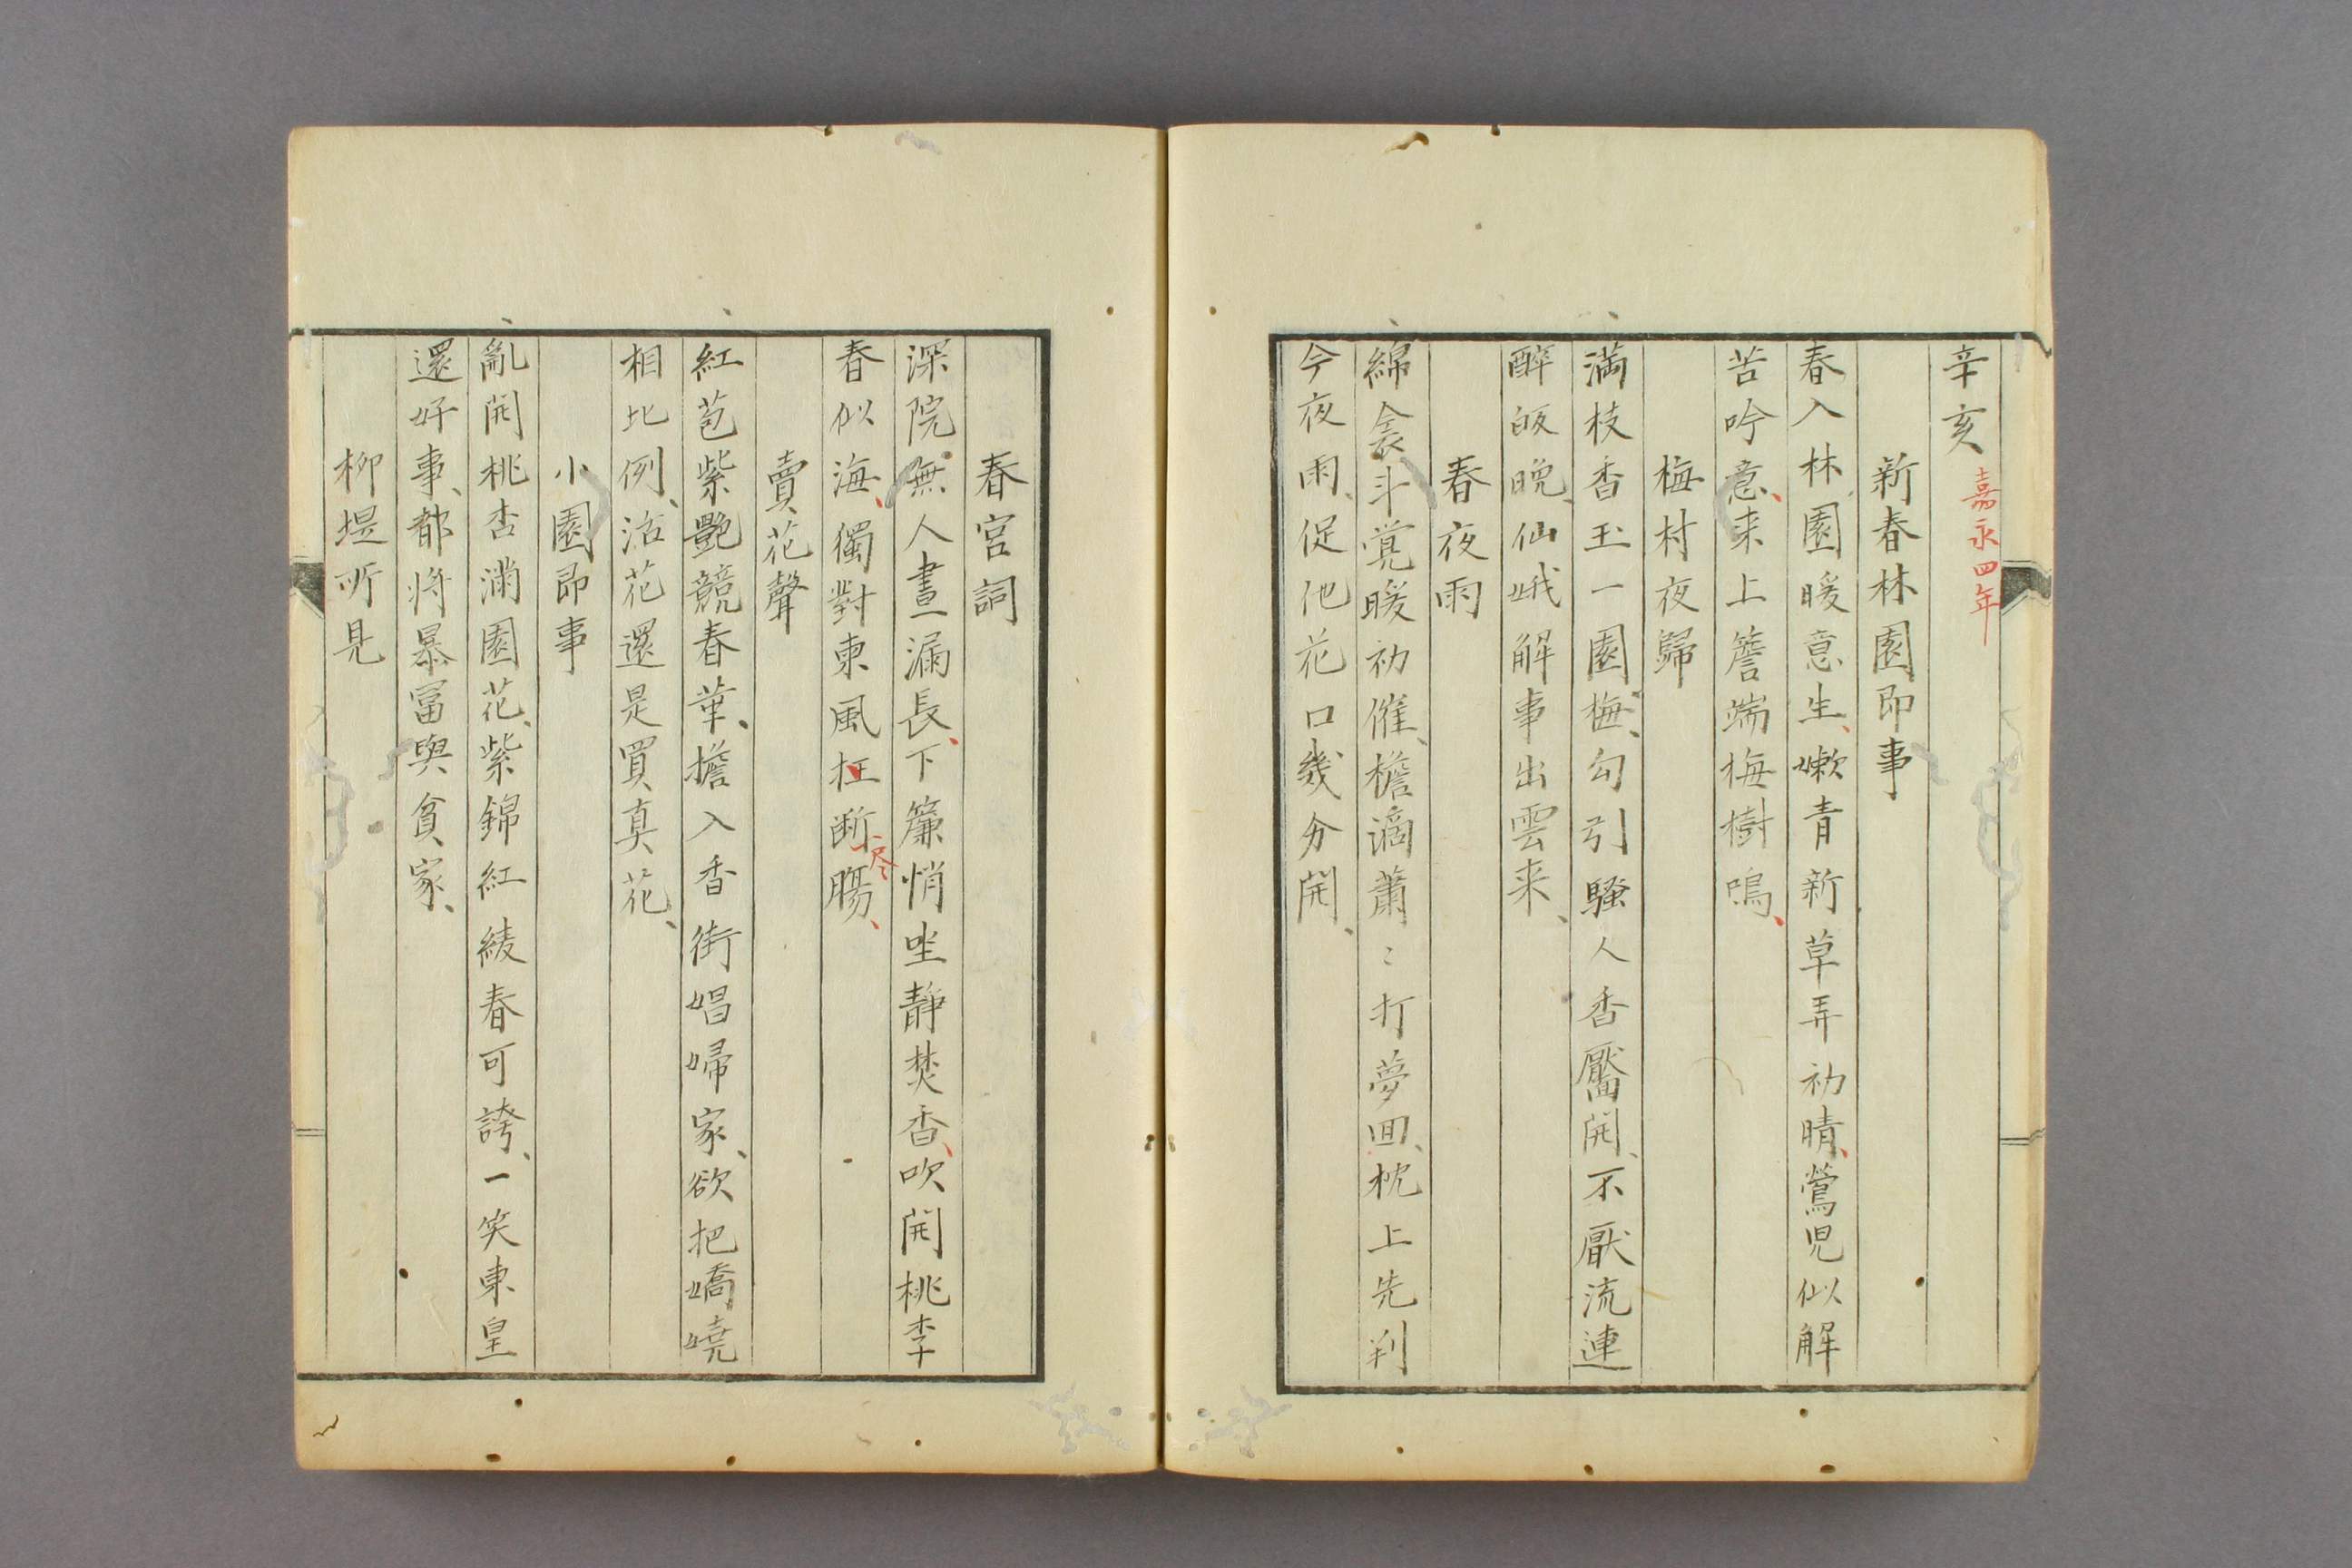 辛亥 嘉永四年
新春林園即事
春入林園暖意生、嫩青新草弄初晴、鶯児似解
苦吟意、来上簷端梅樹鳴、
梅村夜歸
満枝香玉一園梅、勾引騒人香靨開、不厭流連
醉皈晩、仙娥解事出雲来、
春夜雨
綿衾斗覚暖初催、檐滴蕭〻打夢回、枕上先判
今夜雨、促他花口幾分開、
春宮詞
深院無人晝漏長、下簾悄坐静焚香、吹開桃李
春似海、獨對東風枉断腸、
尽
賣花聲
紅苞紫艷競春華、擔入香街娼婦家、欲把嬌嬈
相比例、沽花還是買真花、
小園即事
亂開桃杏満園花、紫錦紅綾春可誇、一笑東皇
還好事、都将暴冨與貧家、
柳堤所見